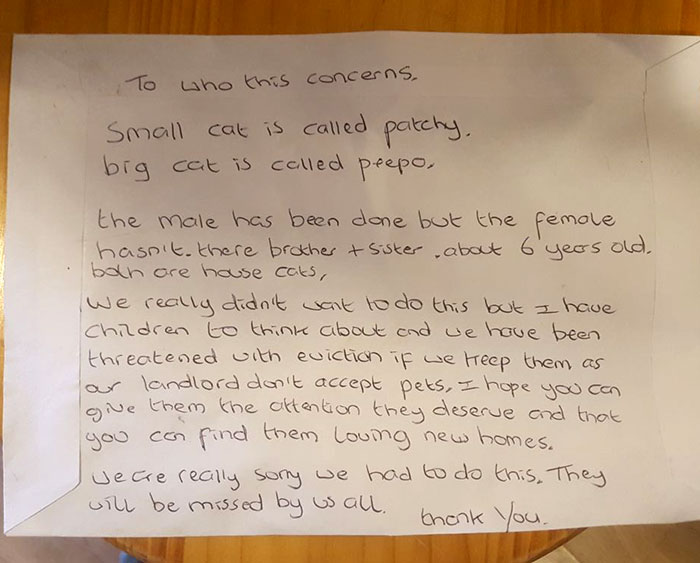 To who this concerns.
Small cat is called patchy.
big cat is called peepo.
the male has been done but the female
hasn't. there brother + sister. about 6 years old.
both are house cats,
We really didn't want to do this but I have
children to think about and we have been
threatened with eviction if we keep them as
our landlord don't accept pets. I hope you can
give them the attention they deserve and that
you can find them loving new homes.
We are really sorry we had to do this. They
will be missed by us all. thank you.